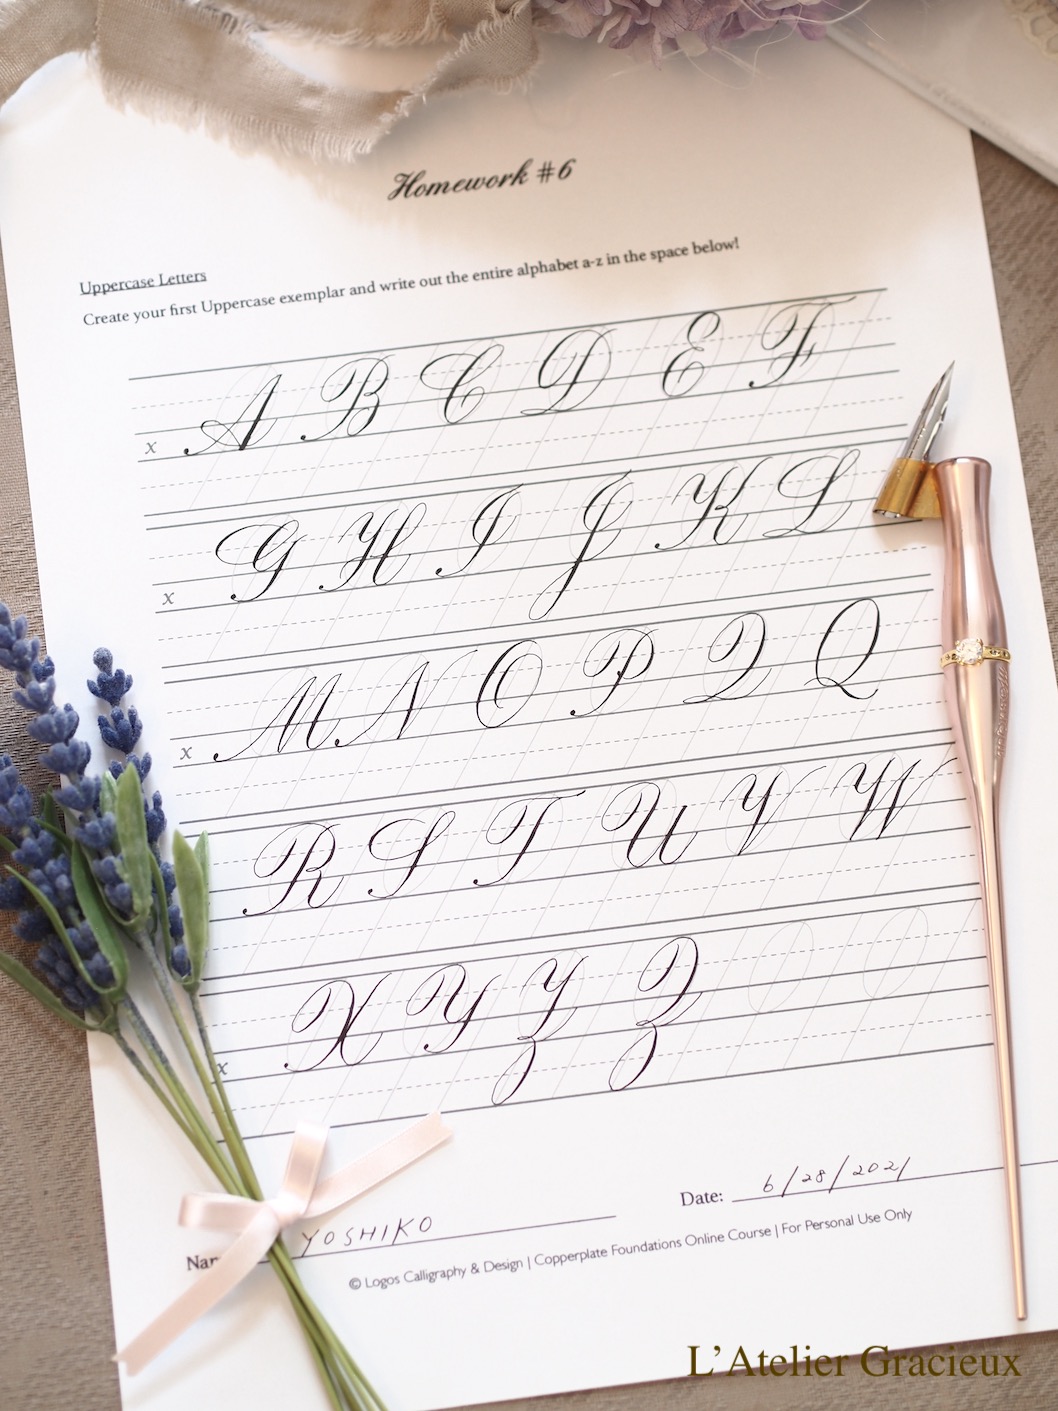 Homework #6
Uppercase Letters
Create your first Uppercase exemplar and write out the entire alphabet a-z in the space below!
x A B C D E F
x G H I J K L
x M N O P Q Q
R S T U V W
x X Y Z Z
YOSHIKO
Date: 6/28/2021
© Logos Calligraphy & Design | Copperplate Foundations Online Course | For Personal Use Only
L'Atelier Gracieux